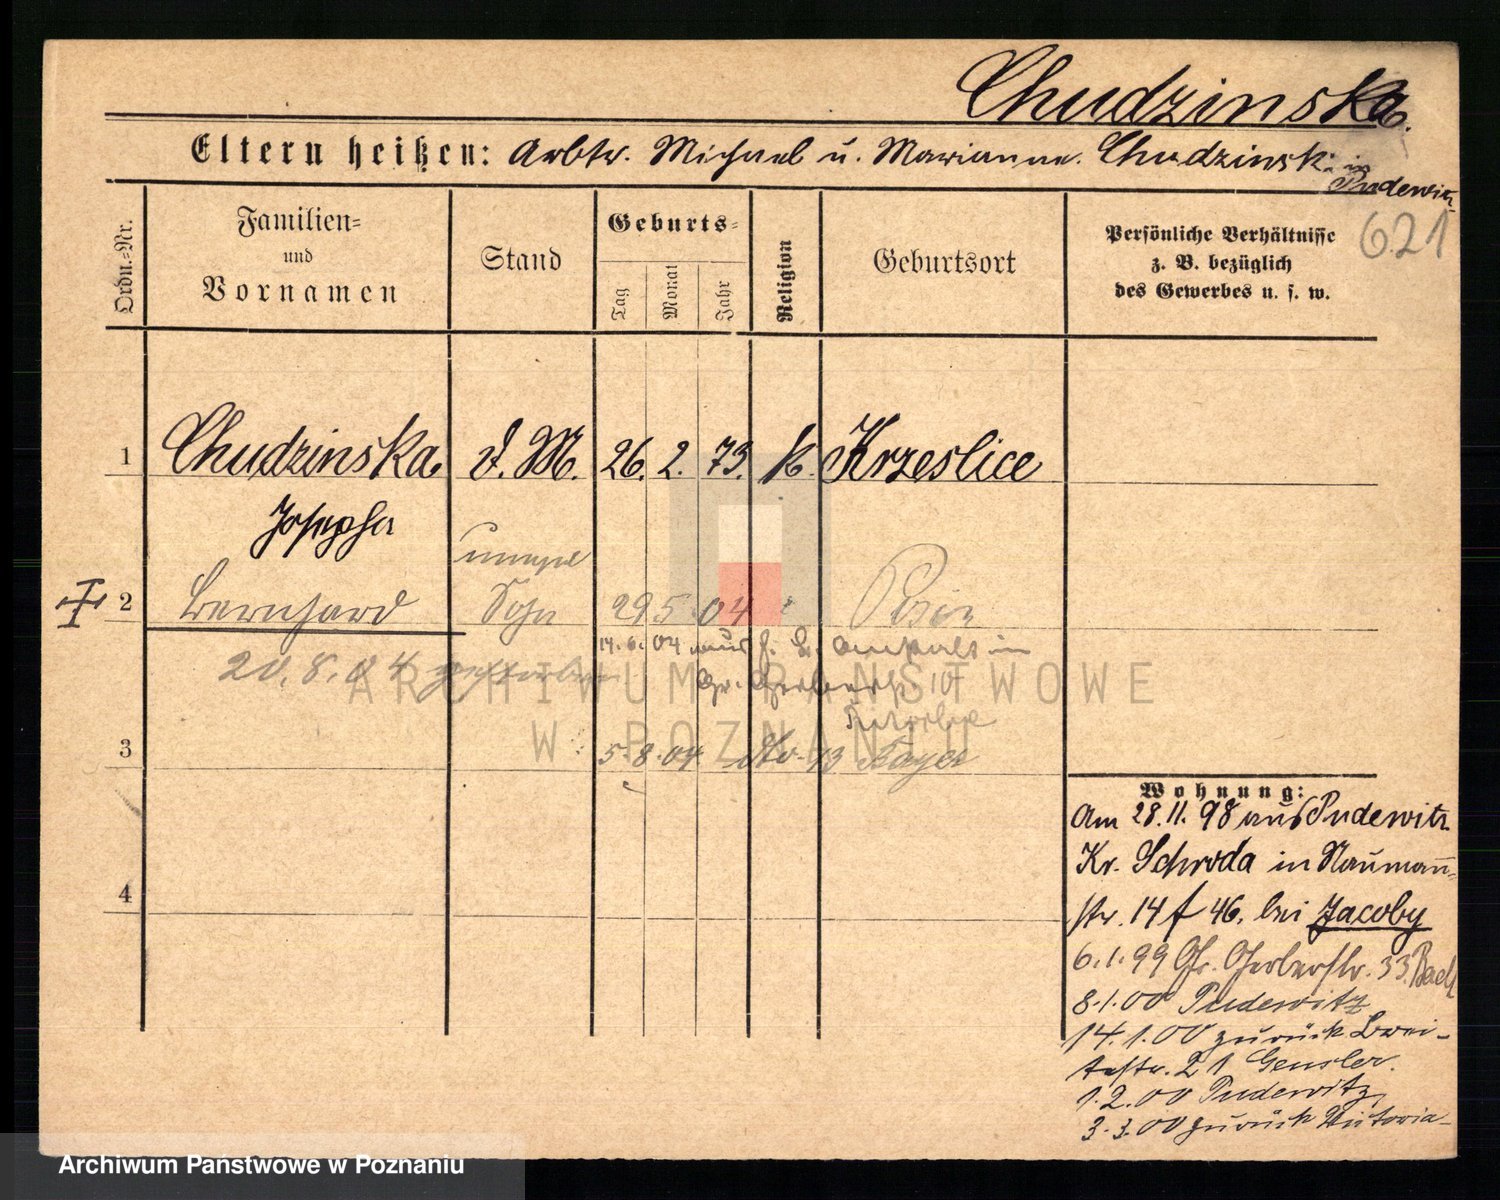 Chudzinska.
Eltern heißen: Arbtr. Michael u. Marianna Chudzinski in
Pudewitz
621
Ordn.-Nr.
Familien-
und
Vornamen
Stand
Geburts-
Tag
Monat
Jahr
Religion
Geburtsort
Persönliche Verhältnisse
z. B. bezüglich
des Gewerbes u. s. w.
1 Chudzinska d. M. 26. 2. 73. k. Krzeslice
Josepha
unehel
2 Bernhard Sohn 29 5 04 Posen
20.8.04 gestorben
14.6.04 aus in
Gr. Gerberst. 10
3 5.8.04 13 Bayer
4
Wohnung:
Am 28.11.98 aus Pudewitz
Kr. Schroda in Naumann-
str. 14 f 46. bei Jacoby
6.1.99 Gr. Gerberstr. 33. Bach
8.1.00 Pudewitz
14.1.00 zurück Brei-
testr. 21 Gensler.
1.2.00 Pudewitz
3.3.00 zurück Victoria-
ARCHIWUM PAŃSTWOWE
W POZNANIU
Archiwum Państwowe w Poznaniu